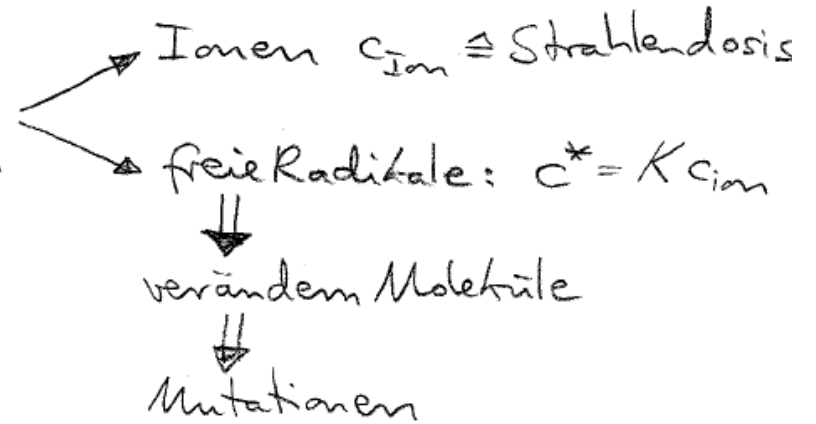 Ionen c_Ion ≙ Strahlendosis
freie Radikale: c* = K c_ion
verändern Moleküle
Mutationen